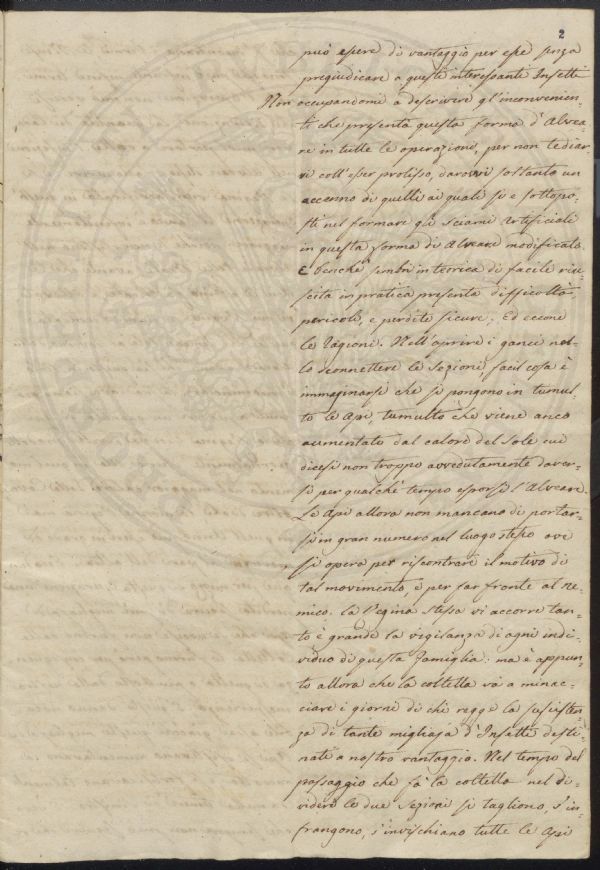 2
può essere di vantaggio per esse senza
pregiudicare a questi interessanti Insetti
Non occupandomi a descrivere gl'inconvenien-
ti che presenta questa forma d'Alvea-
re in tutte le operazioni, per non tediar-
vi coll'esser prolisso, darovvi soltanto un
accenno di quelli ai quali si è sottopo-
sti nel formare gli sciami artificiali
in questa forma di Alveare modificato.
E benchè sembri in teorica di facile riu-
scita in pratica presenta difficoltà
pericoli, e perdite sicure; Ed eccone
le ragioni. Nell'aprire i ganci nel-
lo sconnettere le sezioni facil cosa è
immaginarsi che si pongono in tumul-
to le Api, tumulto che viene anco
aumentato dal calore del sole cui
dicesi non troppo avvedutamente daver-
si per qualche tempo esporsi l'Alveare.
Le Api allora non mancano di portar-
si in gran numero nel luogo stesso ove
si opera per riscontrare il motivo di
tal movimento, e per far fronte al ne-
mico. La Regina stessa vi accorre tan-
to è grande la vigilanza di ogni indi-
viduo di questa famiglia: ma è appun-
to allora che la coltella và a minac-
ciare i giorni di chi regge la sussisten-
za di tante migliaja d'Insetti desti-
nati a nostro vantaggio. Nel tempo del
passaggio che fà la coltella nel di-
videre le due sezioni si tagliono, s'in-
frangono, s'invischiano tutte le Api